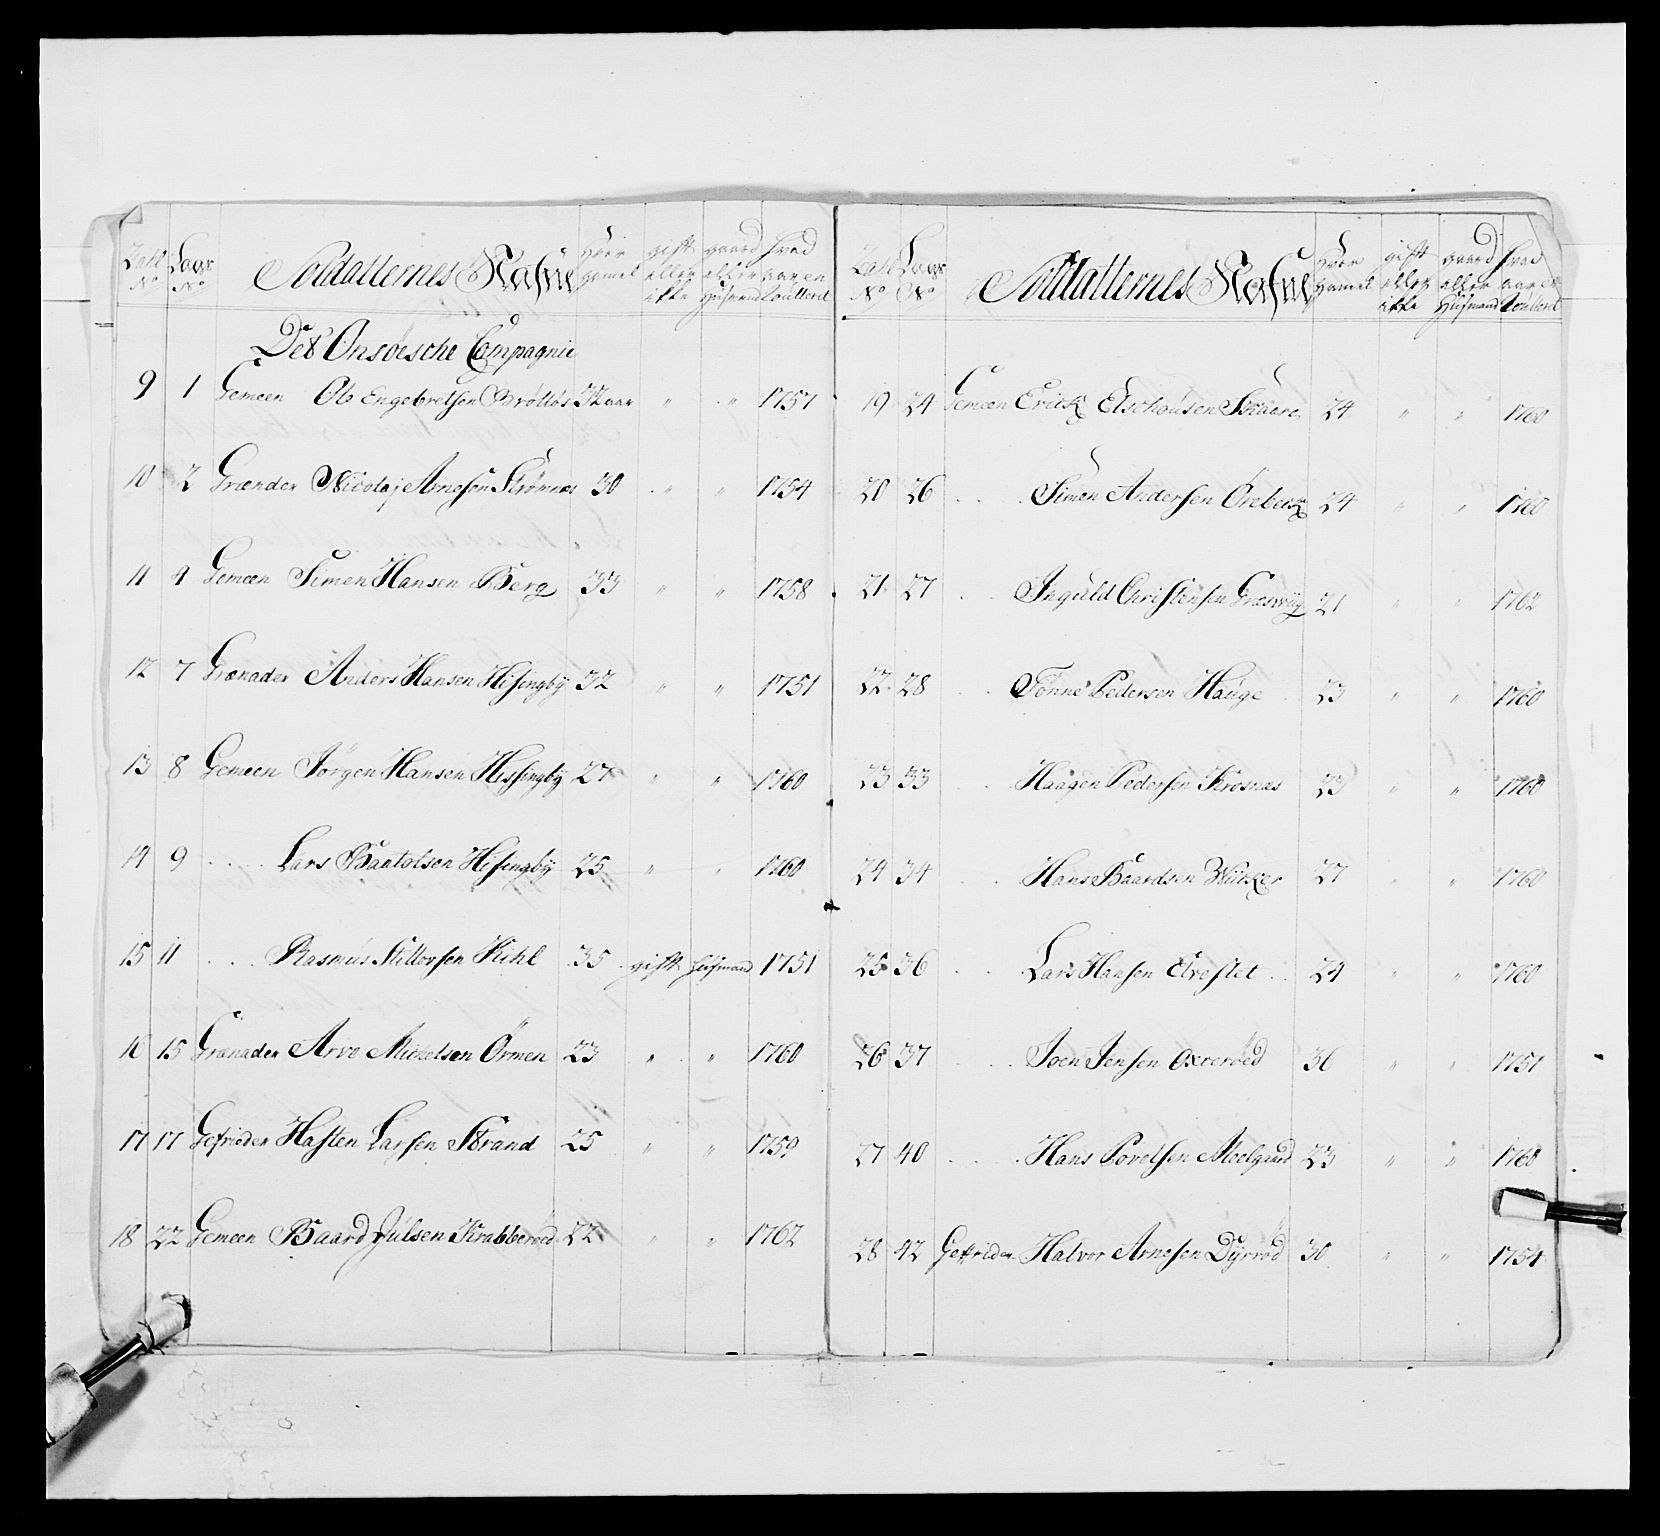 Zahl No Lags No Soldatternes Nafne Hvor gamel gift eller ikke gaard eller Huusmand hvad aar enroullerd
Det Onsøesche Compagnie
9 1 Gemeen Ole Engebretsen 1757
10 2 Grænader Nicolaj Arnesen Strømnæs 30 " " 1754
11 4 Gemeen Simen Hansen Berg 33 " " 1758
12 7 Grænader Anders Hansen Hisingby 32 " " 1751
13 8 Gemeen Jørgen Hansen Hissingby 27 " " 1760
14 9 Lars Baatolsen Hisingby 25 " " 1760
15 11 Rasmus Kihl 35 gift huusmand 1751
16 15 Grænader Arve Michelsen Ørmen 23 " " 1760
17 17 Gefrieder Hasten Larsen Strand 25 " " 1759
18 22 Gemeen Baard Julsen Krabberød 22 " " 1762
Zahl No Lags No Soldatternes Nafne Hvor gamel gift eller ikke gaard eller Huusmand hvad aar enroullerd
19 24 Gemeen Erick Skaare 24 " " 1760
20 26 Simen Andersen Øreberg 24 " " 1760
21 27 Inguld Christensen Græsviig 21 " " 1762
22 28 Tønne Pedersen Hauge 23 " " 1760
23 33 Haagen Pedersen Krosnæs 23 " " 1760
24 34 Hans Baardsen 27 " " 1760
25 36 Lars Hansen Elvestet 24 " " 1760
26 37 Joen Jensen Oxerøed 36 " " 1751
27 40 Hans Povelsen Meelgaard 23 " " 1760
28 42 Gefrider Halvor Arnesen Dyrrød 30 " " 1754